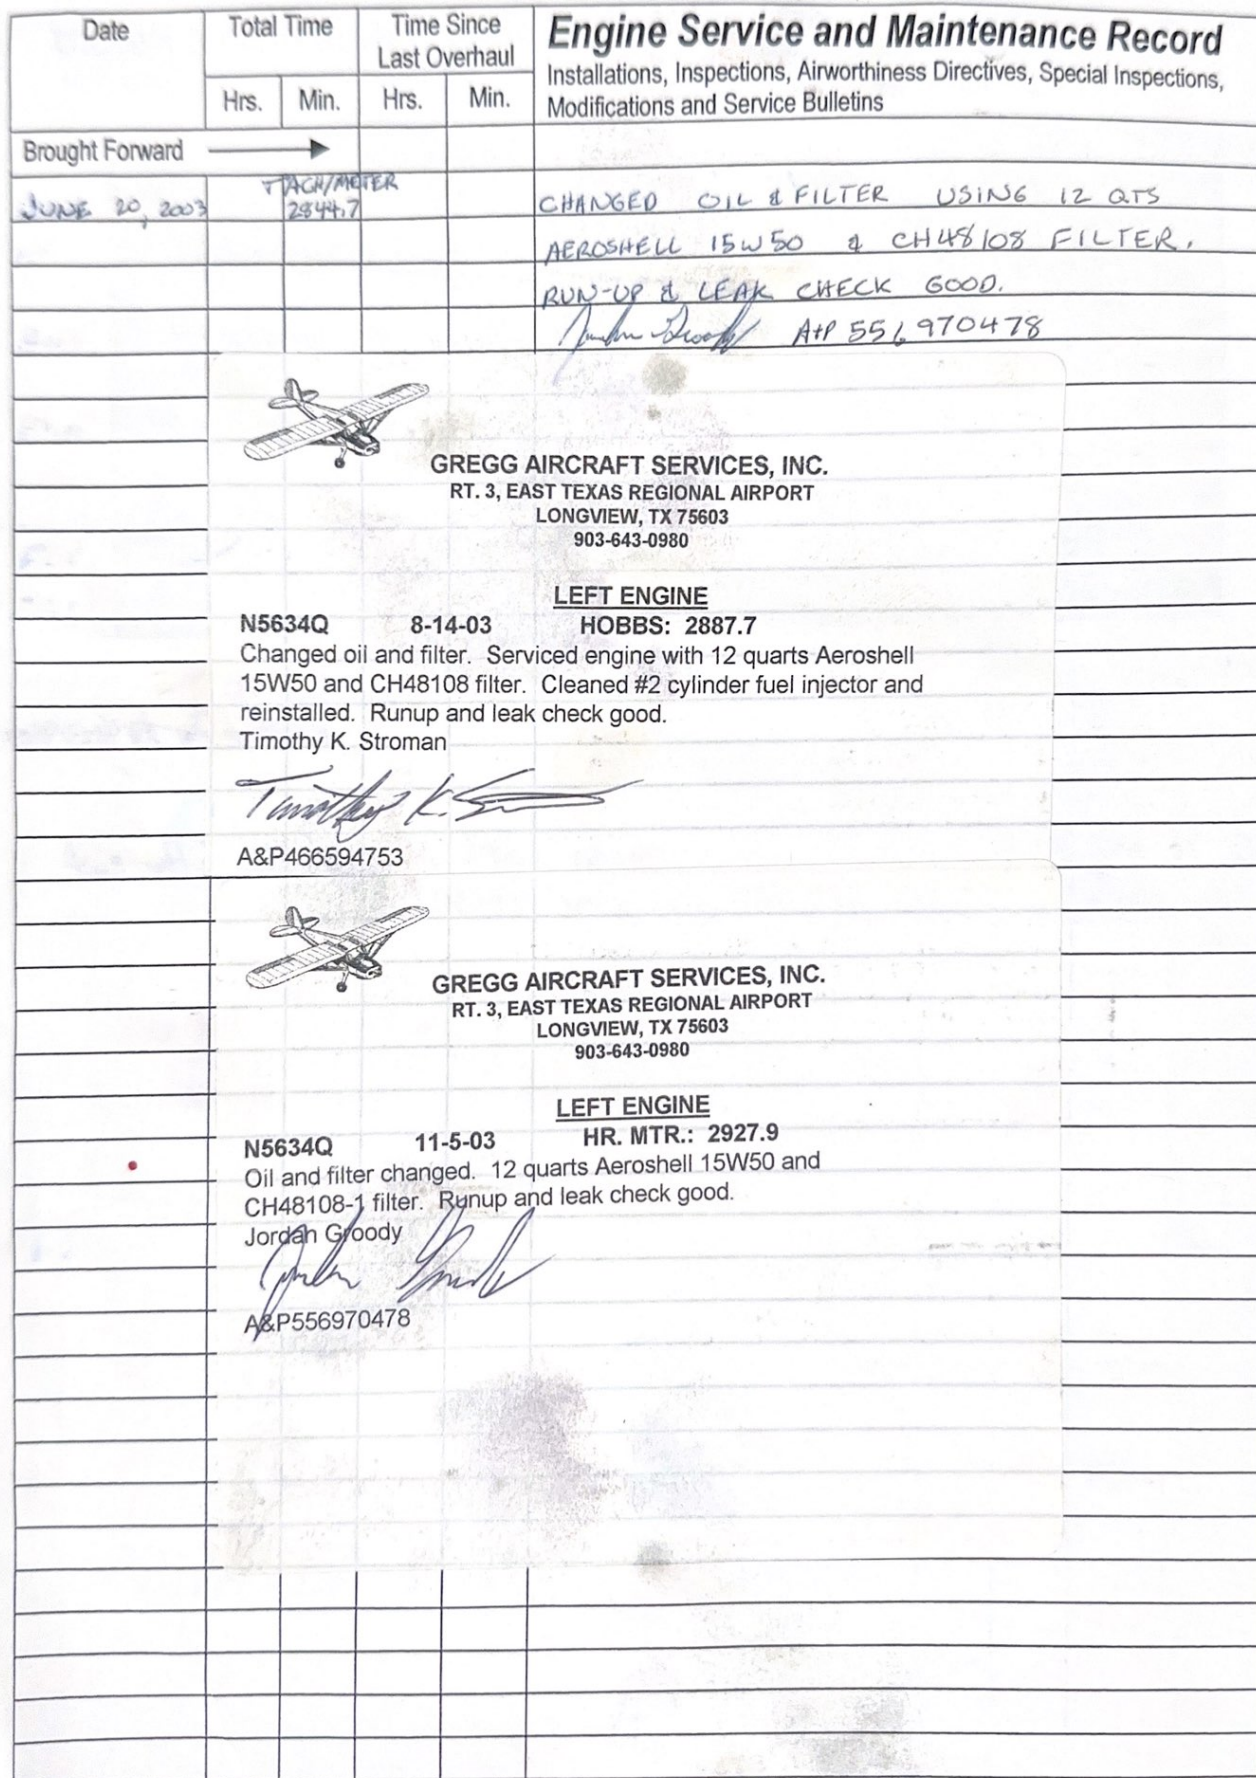 Date
Total Time
Time Since
Last Overhaul
Hrs.
Min.
Hrs.
Min.
Engine Service and Maintenance Record
Installations, Inspections, Airworthiness Directives, Special Inspections,
Modifications and Service Bulletins
Brought Forward
TACH/METER
JUNE 20, 2003
2844.7
CHANGED OIL & FILTER USING 12 QTS
AEROSHELL 15W50 & CH48108 FILTER.
RUN-UP & LEAK CHECK GOOD.
A+P 556970478
GREGG AIRCRAFT SERVICES, INC.
RT. 3, EAST TEXAS REGIONAL AIRPORT
LONGVIEW, TX 75603
903-643-0980
LEFT ENGINE
N5634Q 8-14-03 HOBBS: 2887.7
Changed oil and filter. Serviced engine with 12 quarts Aeroshell
15W50 and CH48108 filter. Cleaned #2 cylinder fuel injector and
reinstalled. Runup and leak check good.
Timothy K. Stroman
Timothy K.
A&P466594753
GREGG AIRCRAFT SERVICES, INC.
RT. 3, EAST TEXAS REGIONAL AIRPORT
LONGVIEW, TX 75603
903-643-0980
LEFT ENGINE
N5634Q 11-5-03 HR. MTR.: 2927.9
Oil and filter changed. 12 quarts Aeroshell 15W50 and
CH48108-1 filter. Runup and leak check good.
Jordan Groody
A&P556970478